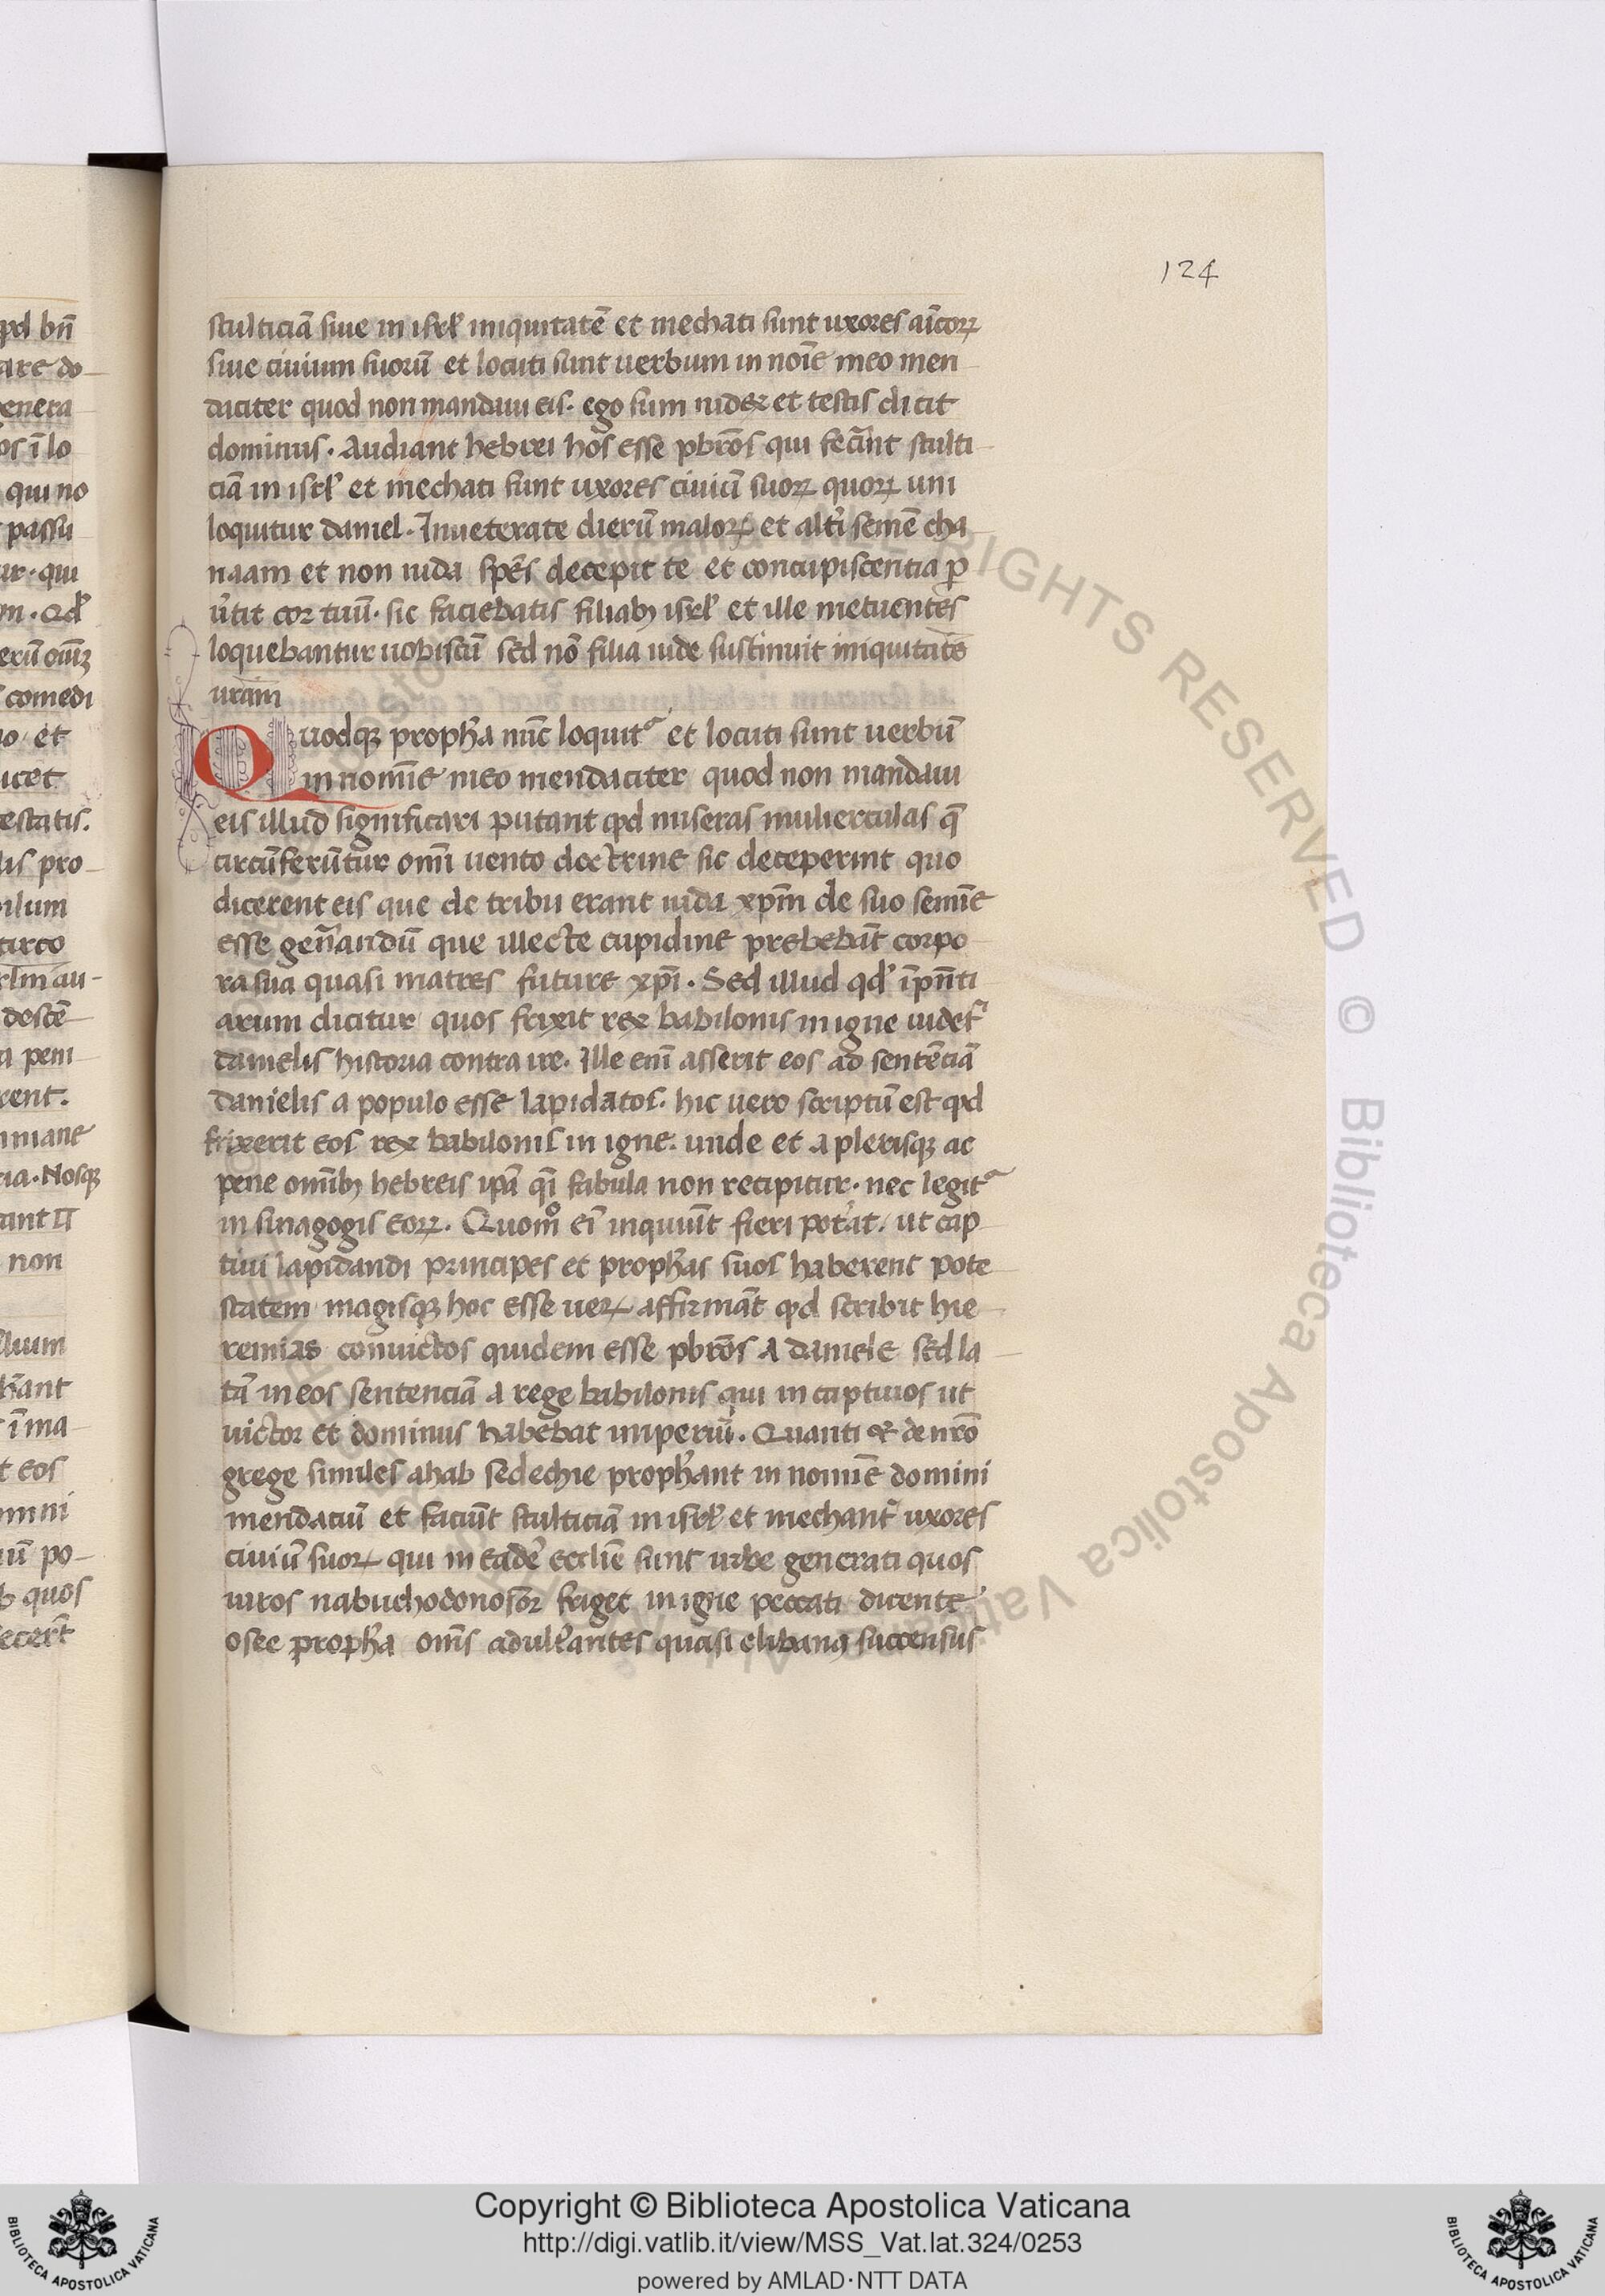 124
stulticiā siue in isrl' iniquitatē et mechati sunt uxores aīcoꝝ
siue ciuium suorū et locuti sunt uerbum in noīe meo men
daciter quod non mandaui eis· ego sum iudex et testis dicit
dominus· Audiant hebrei hos esse pbrōs qui fecer̄nt stulti
ciā in isrl' et mechati sunt uxores ciuiū suoꝝ quoꝝ uni
loquitur daniel· Inueterate dierū maloꝝ et alt'i semē cha
naam et non iuda spēs decepit te et concupiscentia ꝑ
u'tit cor tuū· sic faciebatis filiabꝫ isrl' et ille metuentes
loquebantur uobiscū sed nō filia iude sustinuit iniquitatē
ur̄am
Quodqꝫ proph'a nūc loquit᷑ et locuti sunt uerbū
in nomīe meo mendaciter quod non mandaui
eis illud significari putant qd miseras mulierculas q̄
circūferūtur omī uento doctrine sic deceperint quo
dicerent eis que de tribu erant iuda xp̄m de suo semīe
esse gen̄andū que illecte cupidine prebebāt corpo
ra sua quasi matres future xp̄i· Sed illud qd' īpn̄ti
arum dicitur quos frixit rex babilonis in igne uidet᷑
danielis historia contra ire· Ille enī asserit eos ad sentēciā
danielis a populo esse lapidatos· hic uero scriptū est qd
frixerit eos rex babilonis in igne· unde et a plerisqꝫ ac
pene omībꝫ hebreis ipā qī fabula non recipitur· nec legit᷑
in sinagogis eoꝝ· Quomᵒ eī inquiūt fieri pot'at· ut cap
tiui lapidandi principes et proph'as suos haberent pote
statem magisqꝫ hoc esse ueꝝ affirmāt qd scribit hie
remias conuictos quidem esse pbrōs a daniele sed la
tā in eos sentenciā a rege babilonis qui in captiuos ut
uictor et dominus habebat imperiū· Quanti & de nr̄o
grege similes ahab sedechie proph'ant in nomīe domini
mendaciū et faciūt stulticiā in isrl' et mechant᷑ uxores
ciuiū suoꝝ qui in eadē ecclīe sunt urbe generati quos
uiros nabuchodonosor friget in igne peccati dicente
osee proph'a omīs adult'antes quasi clibanꝰ succensus
Copyright © Biblioteca Apostolica Vaticana
http://digi.vatlib.it/view/MSS_Vat.lat.324/0253
powered by AMLAD·NTT DATA
BIBLIOTECA APOSTOLICA VATICANA
BIBLIOTECA APOSTOLICA VATICANA